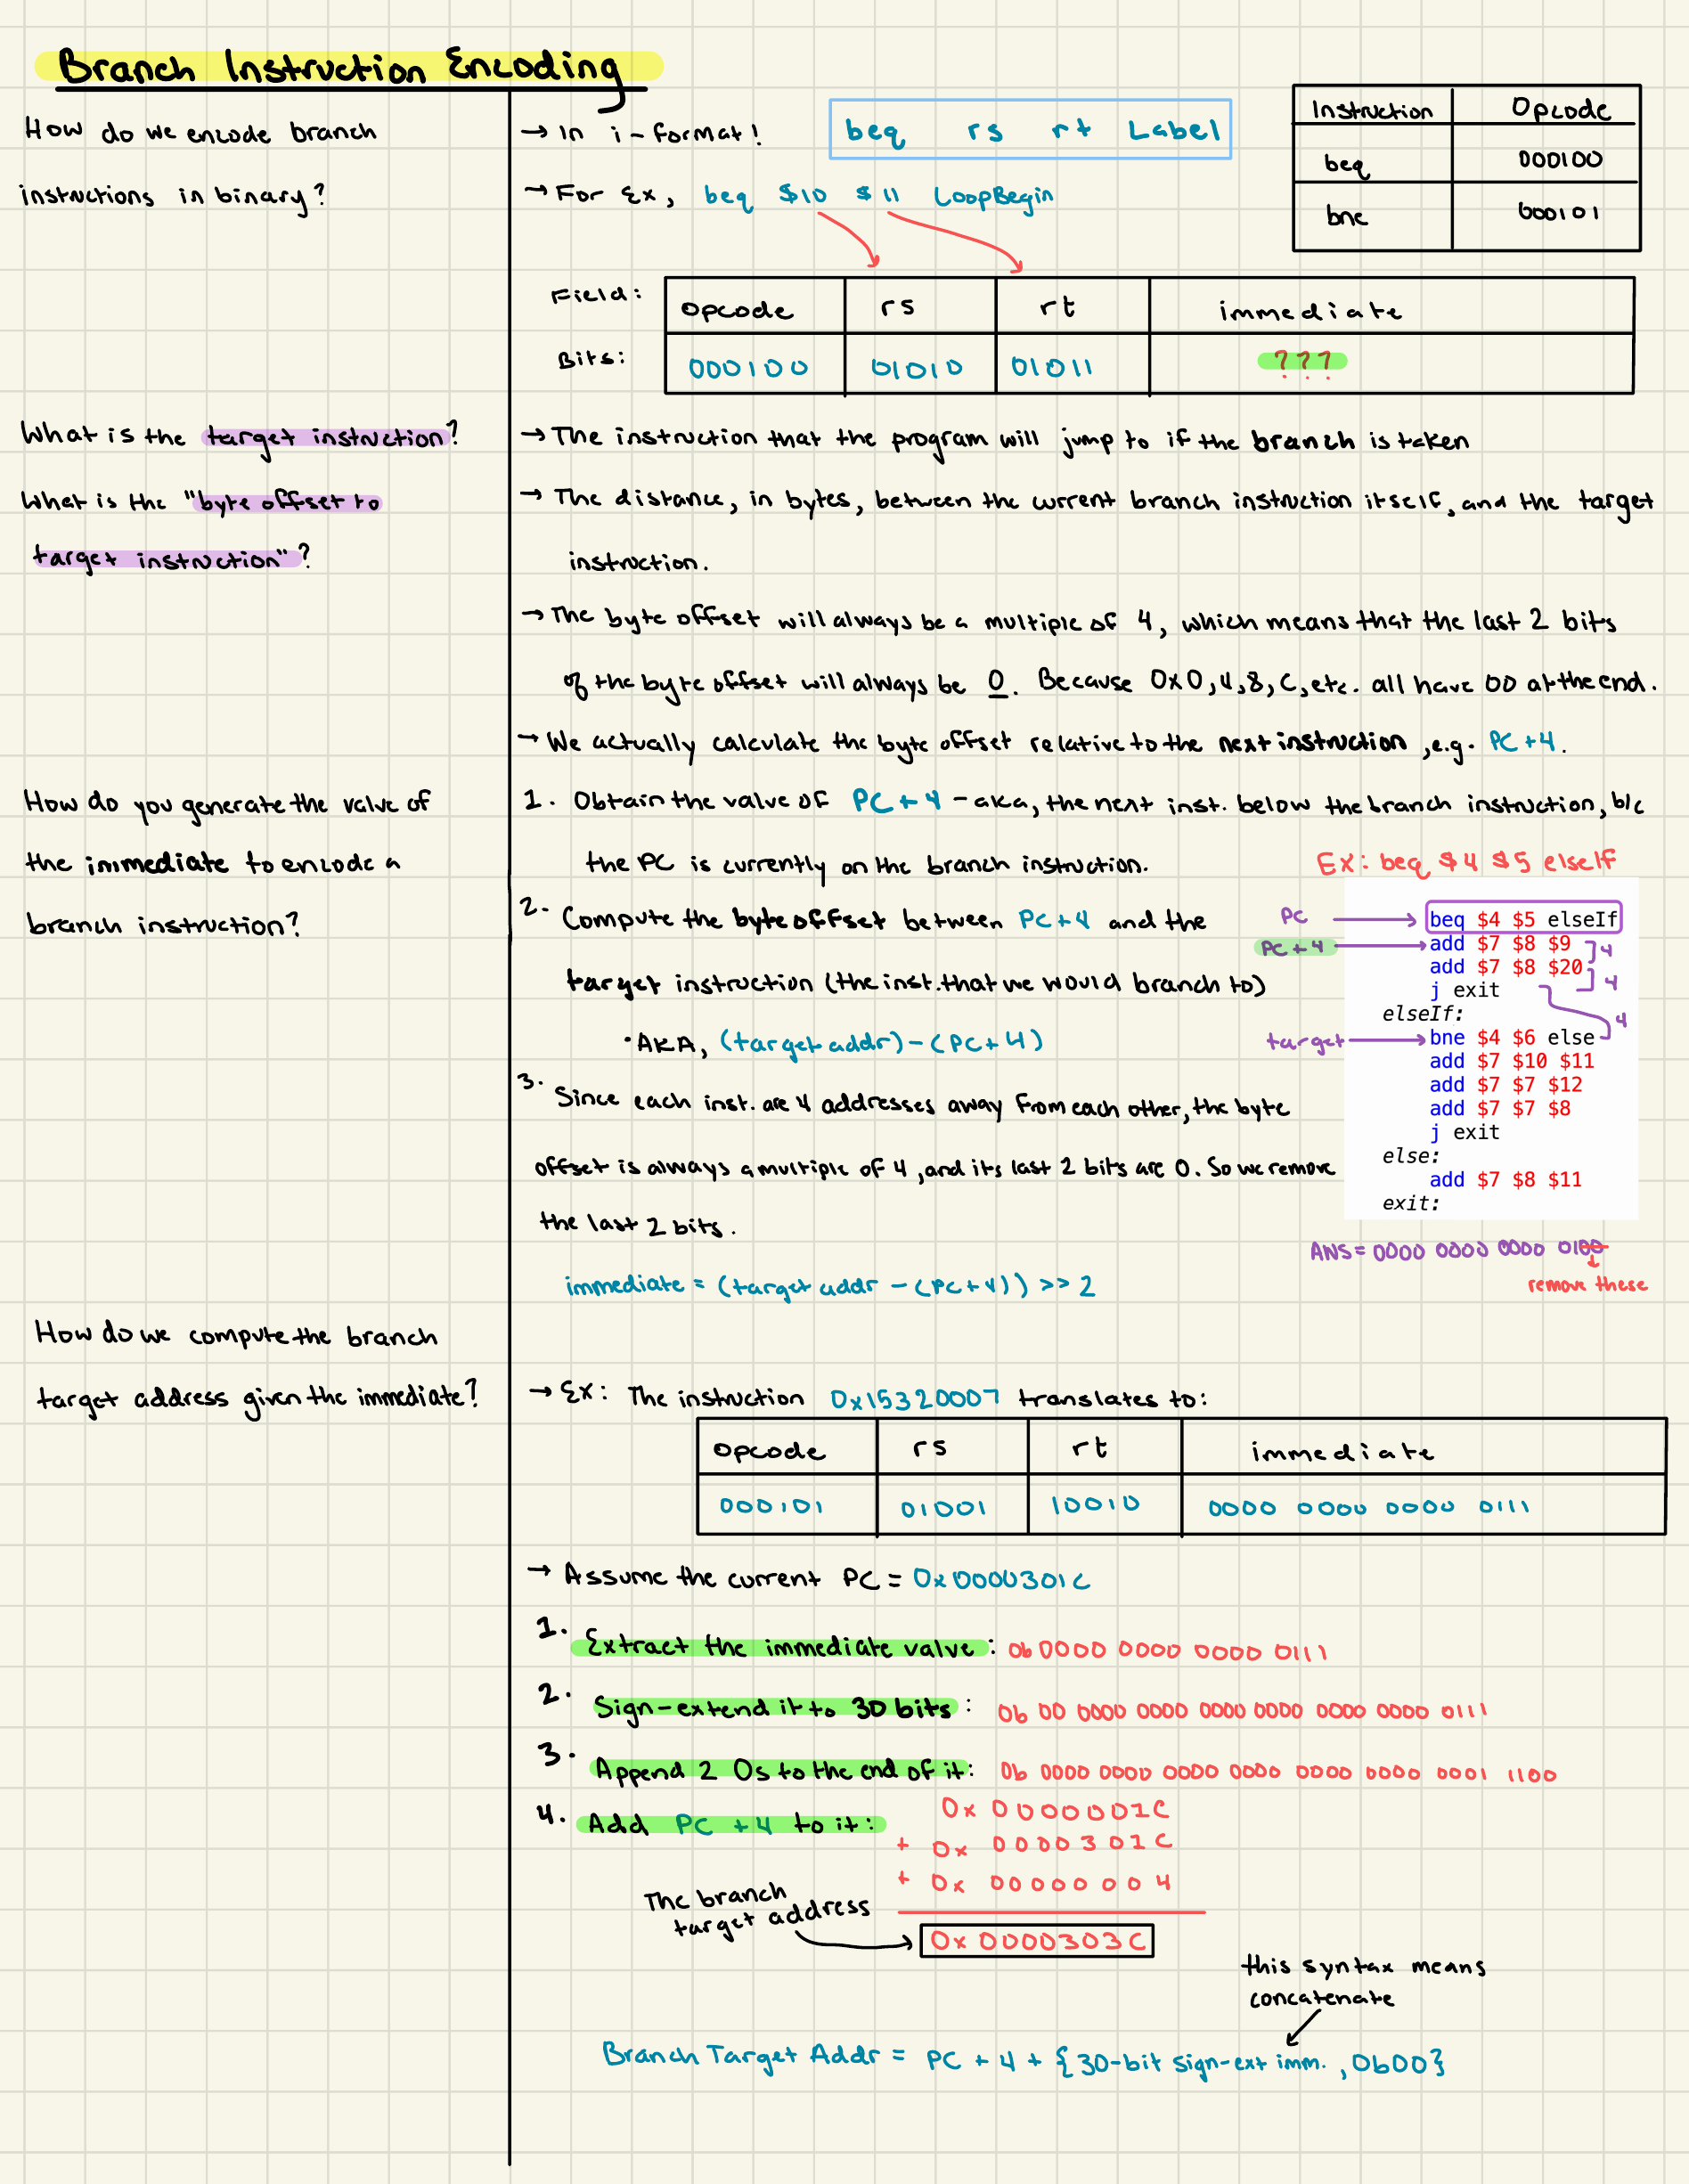 Branch Instruction Encoding
How do we encode branch
instructions in binary?
→ In i-format!
beq rs rt Label
→ For Ex, beq $10 $11 LoopBegin
Instruction Opcode
beq 000100
bne 000101
Field: opcode rs rt immediate
Bits: 000100 01010 01011 ???
What is the target instruction?
→ The instruction that the program will jump to if the branch is taken
What is the "byte offset to
target instruction"?
→ The distance, in bytes, between the current branch instruction itself, and the target
instruction.
→ The byte offset will always be a multiple of 4, which means that the last 2 bits
of the byte offset will always be 0. Because 0x0,4,8,C,etc. all have 00 at the end.
→ We actually calculate the byte offset relative to the next instruction, e.g. PC+4.
How do you generate the value of
the immediate to encode a
branch instruction?
1. Obtain the value of PC+4 - aka, the next inst. below the branch instruction, b/c
the PC is currently on the branch instruction.
2. Compute the byte offset between PC+4 and the
target instruction (the inst. that we would branch to)
• AKA, (target addr) - (PC+4)
3. Since each inst. are 4 addresses away from each other, the byte
offset is always a multiple of 4, and its last 2 bits are 0. So we remove
the last 2 bits.
immediate = (target addr - (PC+4)) >> 2
Ex: beq $4 $5 elseIf
PC → beq $4 $5 elseIf
PC+4 → add $7 $8 $9
4
add $7 $8 $20
4
j exit
4
elseIf:
target → bne $4 $6 else
add $7 $10 $11
add $7 $7 $12
add $7 $7 $8
j exit
else:
add $7 $8 $11
exit:
ANS = 0000 0000 0000 0100
remove these
How do we compute the branch
target address given the immediate?
→ Ex: The instruction 0x15320007 translates to:
opcode rs rt immediate
000101 01001 10010 0000 0000 0000 0111
→ Assume the current PC = 0x0000301C
1. Extract the immediate value: 0b 0000 0000 0000 0111
2. Sign-extend it to 30 bits: 0b 00 0000 0000 0000 0000 0000 0000 0111
3. Append 2 0s to the end of it: 0b 0000 0000 0000 0000 0000 0000 0001 1100
4. Add PC + 4 to it:
0x 0000001C
+ 0x 0000301C
+ 0x 00000004
The branch
target address
0x0000303C
this syntax means
concatenate
Branch Target Addr = PC + 4 + {30-bit sign-ext imm., 0b00}